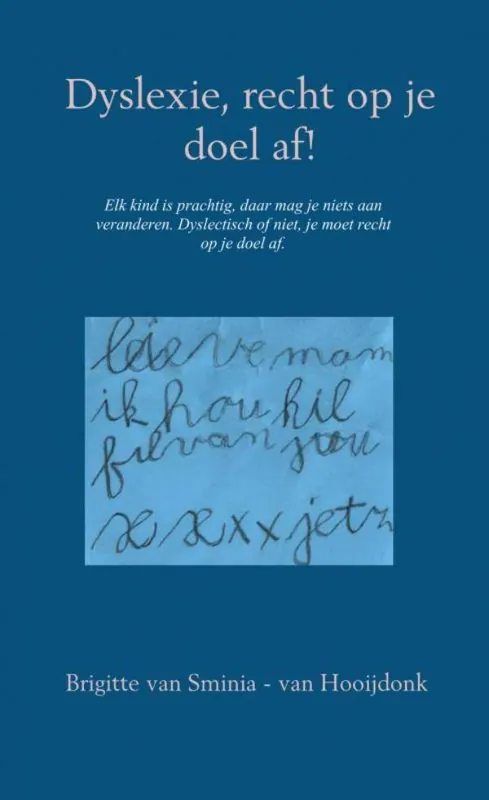 Dyslexie, recht op je
doel af!
Elk kind is prachtig, daar mag je niets aan
veranderen. Dyslectisch of niet, je moet recht
op je doel af.
leieve mam
ik hou hil
fulvan jou
x x x x jetz
Brigitte van Sminia - van Hooijdonk